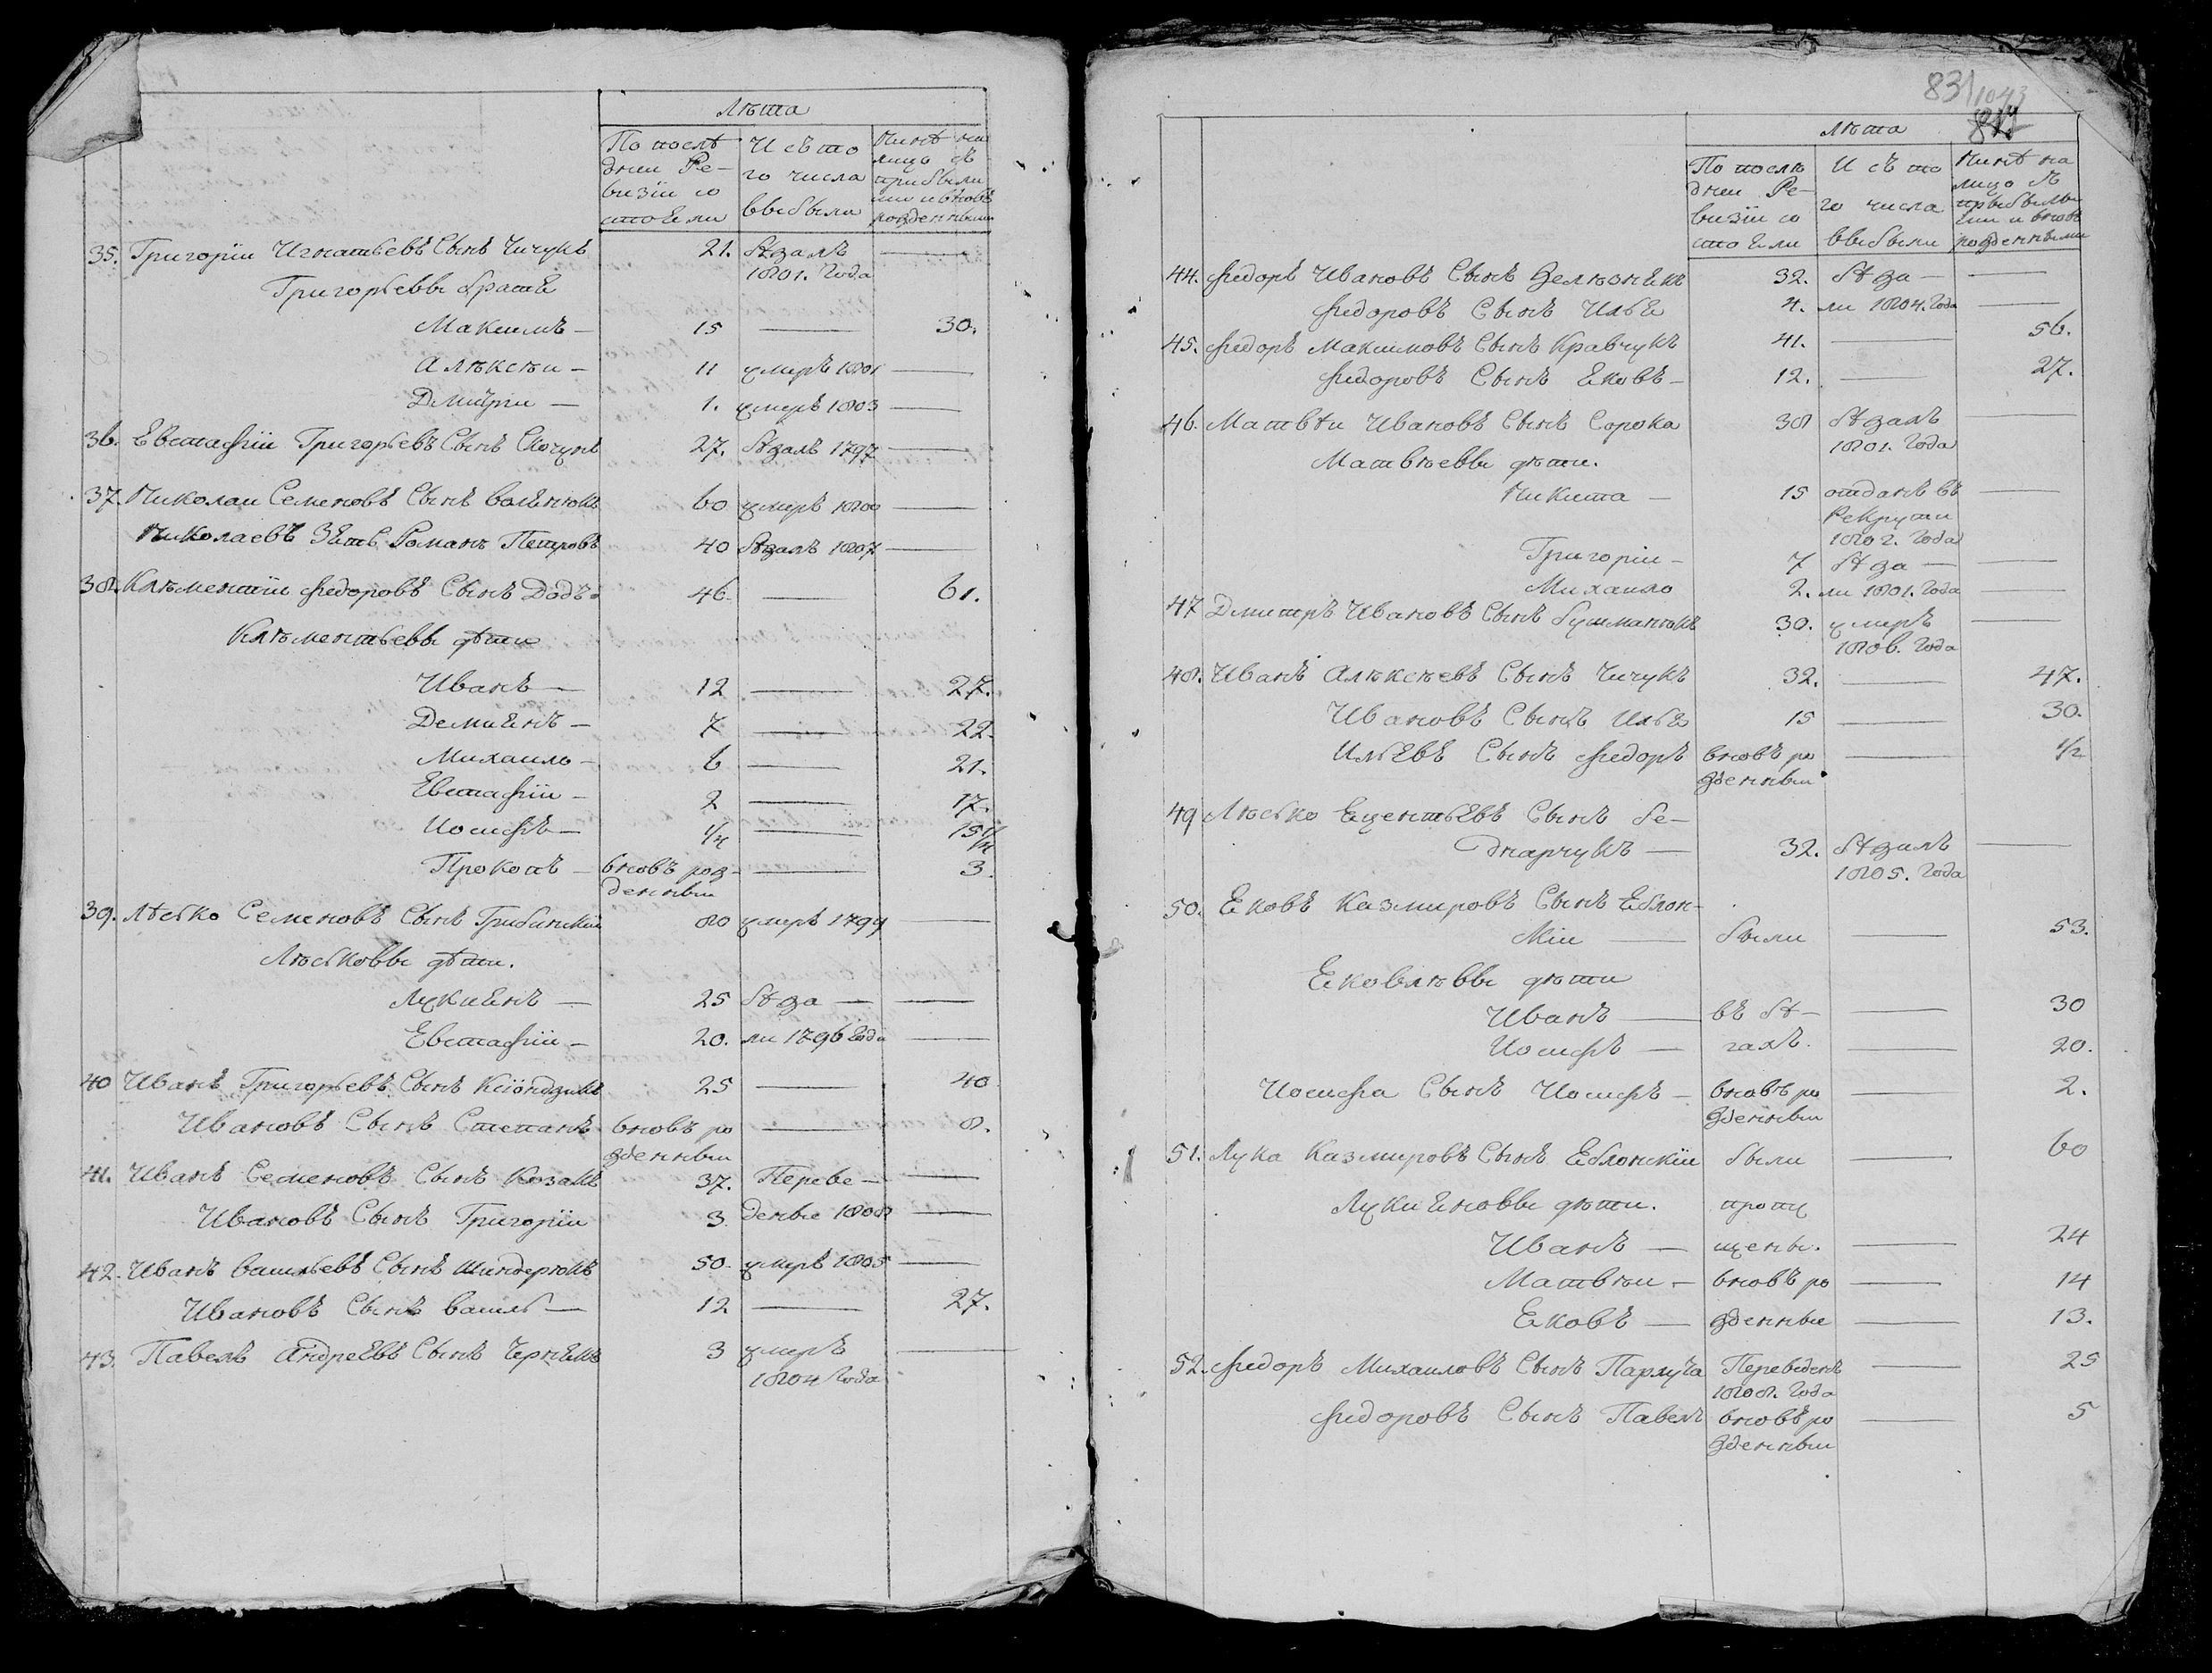 Лѣта
По послѣ
дней Ре-
визіи со
стоѣли
И съ то
го числа
выбыли
Нинѣ на
лицо съ
прибыли
ми и вновь
рожденными
35. Григорій Игнатьевъ Сынъ Чичукъ 21. бѣжалъ —
1801. Года
Григорьевы братѣ
Максимъ — 15 — 30.
Алѣксѣй — 11 умиръ 1801 —
Дмитрій — 1. умеръ 1803 —
36. Евстафій Григорьевъ Сынъ Скочукъ 27. бѣжалъ 1797 —
37. Николай Семеновъ Сынъ 60 умиръ 1800 —
Николаевъ Зѣть Романъ Петровъ 40 бѣжалъ 1807 —
38. Клѣментій Федоровъ Сынъ 46 — 61.
Клѣментьевы дѣти
Иванъ — 12 — 27.
Демиѣнъ — 7 — 22.
Михаило — 6 — 21.
Евстафій — 2 — 17.
Иосифъ — 1/4 — 15 1/4
Прокопъ — вновъ рож- — 3.
денный
39. Лѣсько Семеновъ Сынъ 80 умиръ 1799 —
Лѣськовы дѣти.
Лукиѣнъ — 25 бѣжа — —
Евстафій — 20. ли 1796 Года —
40 Иванъ Григорьевъ Сынъ 25 — 40
Ивановъ Сынъ Степанъ вновъ ро — 8.
жденный
41. Иванъ Семеновъ Сынъ Козакъ 37. Переве — —
Ивановъ Сынъ Григорій 3 дены 1808 —
42. Иванъ Васильевъ Сынъ Шиндерюкъ 50. умиръ 1805 —
Ивановъ Сынъ Василь — 12 — 27.
43. Павелъ Андреѣвъ Сынъ 3 умиръ —
1804 Года
831
1043
Лѣта
По послѣ
дней Ре-
визіи со
стоѣли
И съ то
го числа
выбыли
Нинѣ на
лицо съ
прыбылы
ми и вновъ
рожденными
44. Федоръ Ивановъ Сынъ Зелѣзнѣкъ 32. бѣжа — —
Федоровъ Сынъ Ильѣ 4. ли 1804. Года —
45. Федоръ Максимовъ Сынъ Кравчукъ 41. — 56.
Федоровъ Сынъ Ековъ — 12. — 27.
46. Матвѣй Ивановъ Сынъ Сорока 38 бѣжалъ —
1801. Года
Матвѣевы дѣти.
Никита — 15 отданъ въ —
Рекруты
1802. Года
Григорій — 7 бѣжа — —
Михаило 2. ли 1801. Года —
47 Дмитръ Ивановъ Сынъ 30. умиръ —
1806. Года
48. Иванъ Алѣксѣевъ Сынъ Чичукъ 32. — 47.
Ивановъ Сынъ Ильѣ 15 — 30.
Ильѣвъ Сынъ Федоръ вновъ ро — 1/2
жденный
49 Лѣсько Сынъ Бе-
днарчукъ — 32. бѣжалъ —
1805. Года
50. Ековъ Казмировъ Сынъ Еблон-
скій — были — 53.
Ековлѣвы дѣти
Иванъ — въ бѣ- — 30
Иосифъ — гахъ. — 20.
Иосифа Сынъ Иосифъ — вновъ ро — 2.
жденный
51. Лука Казмировъ Сынъ Еблонскій были — 60
Лукиѣновы дѣти. пропу
Иванъ — щены. — 24
Матвѣй — вновъ ро — 14
Ековъ — жденные — 13.
52. Федоръ Михаиловъ Сынъ Парлуча Переведенъ — 25
1808. Года
Федоровъ Сынъ Павелъ вновъ ро — 5
жденный